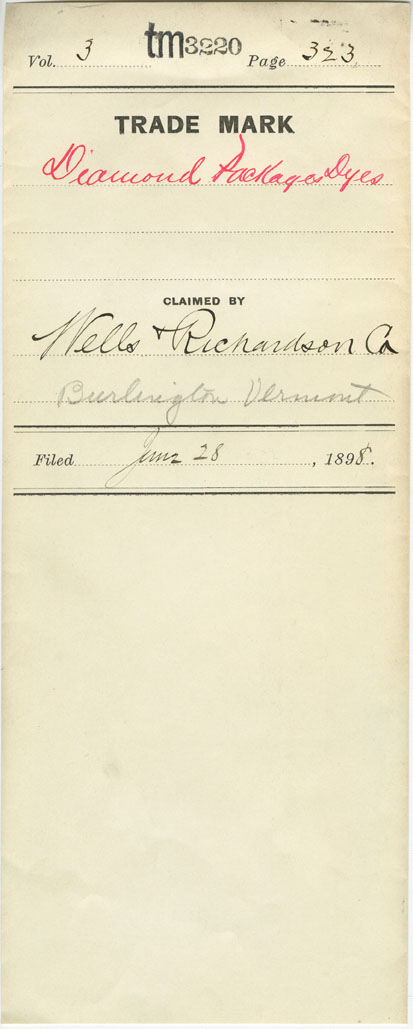 Vol. 3 tm3220 Page 323
TRADE MARK
Diamond Packages Dyes
CLAIMED BY
Wells & Richardson Co
Burlington Vermont
Filed June 28, 1898.